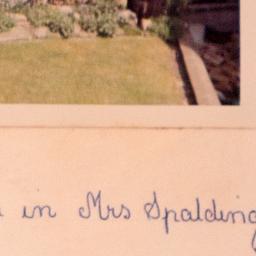 in Mrs Spalding